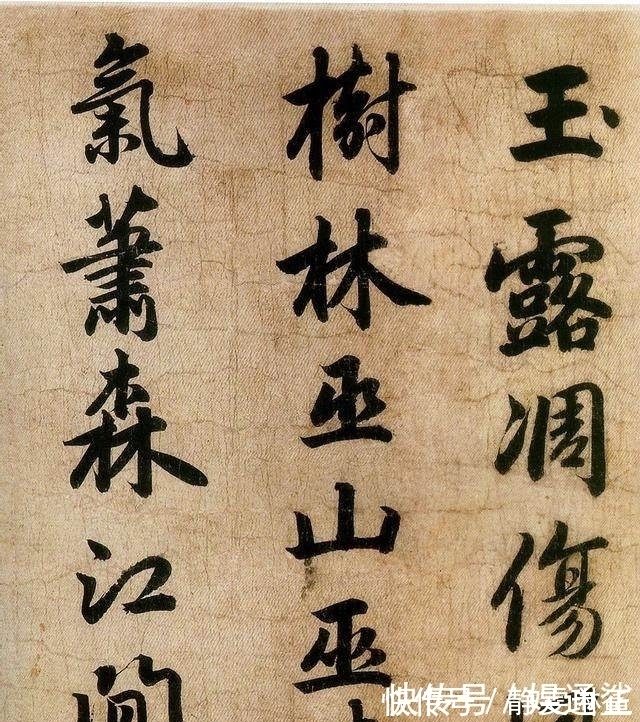 玉露凋傷
樹林巫山巫
氣蕭森江間
快传号/